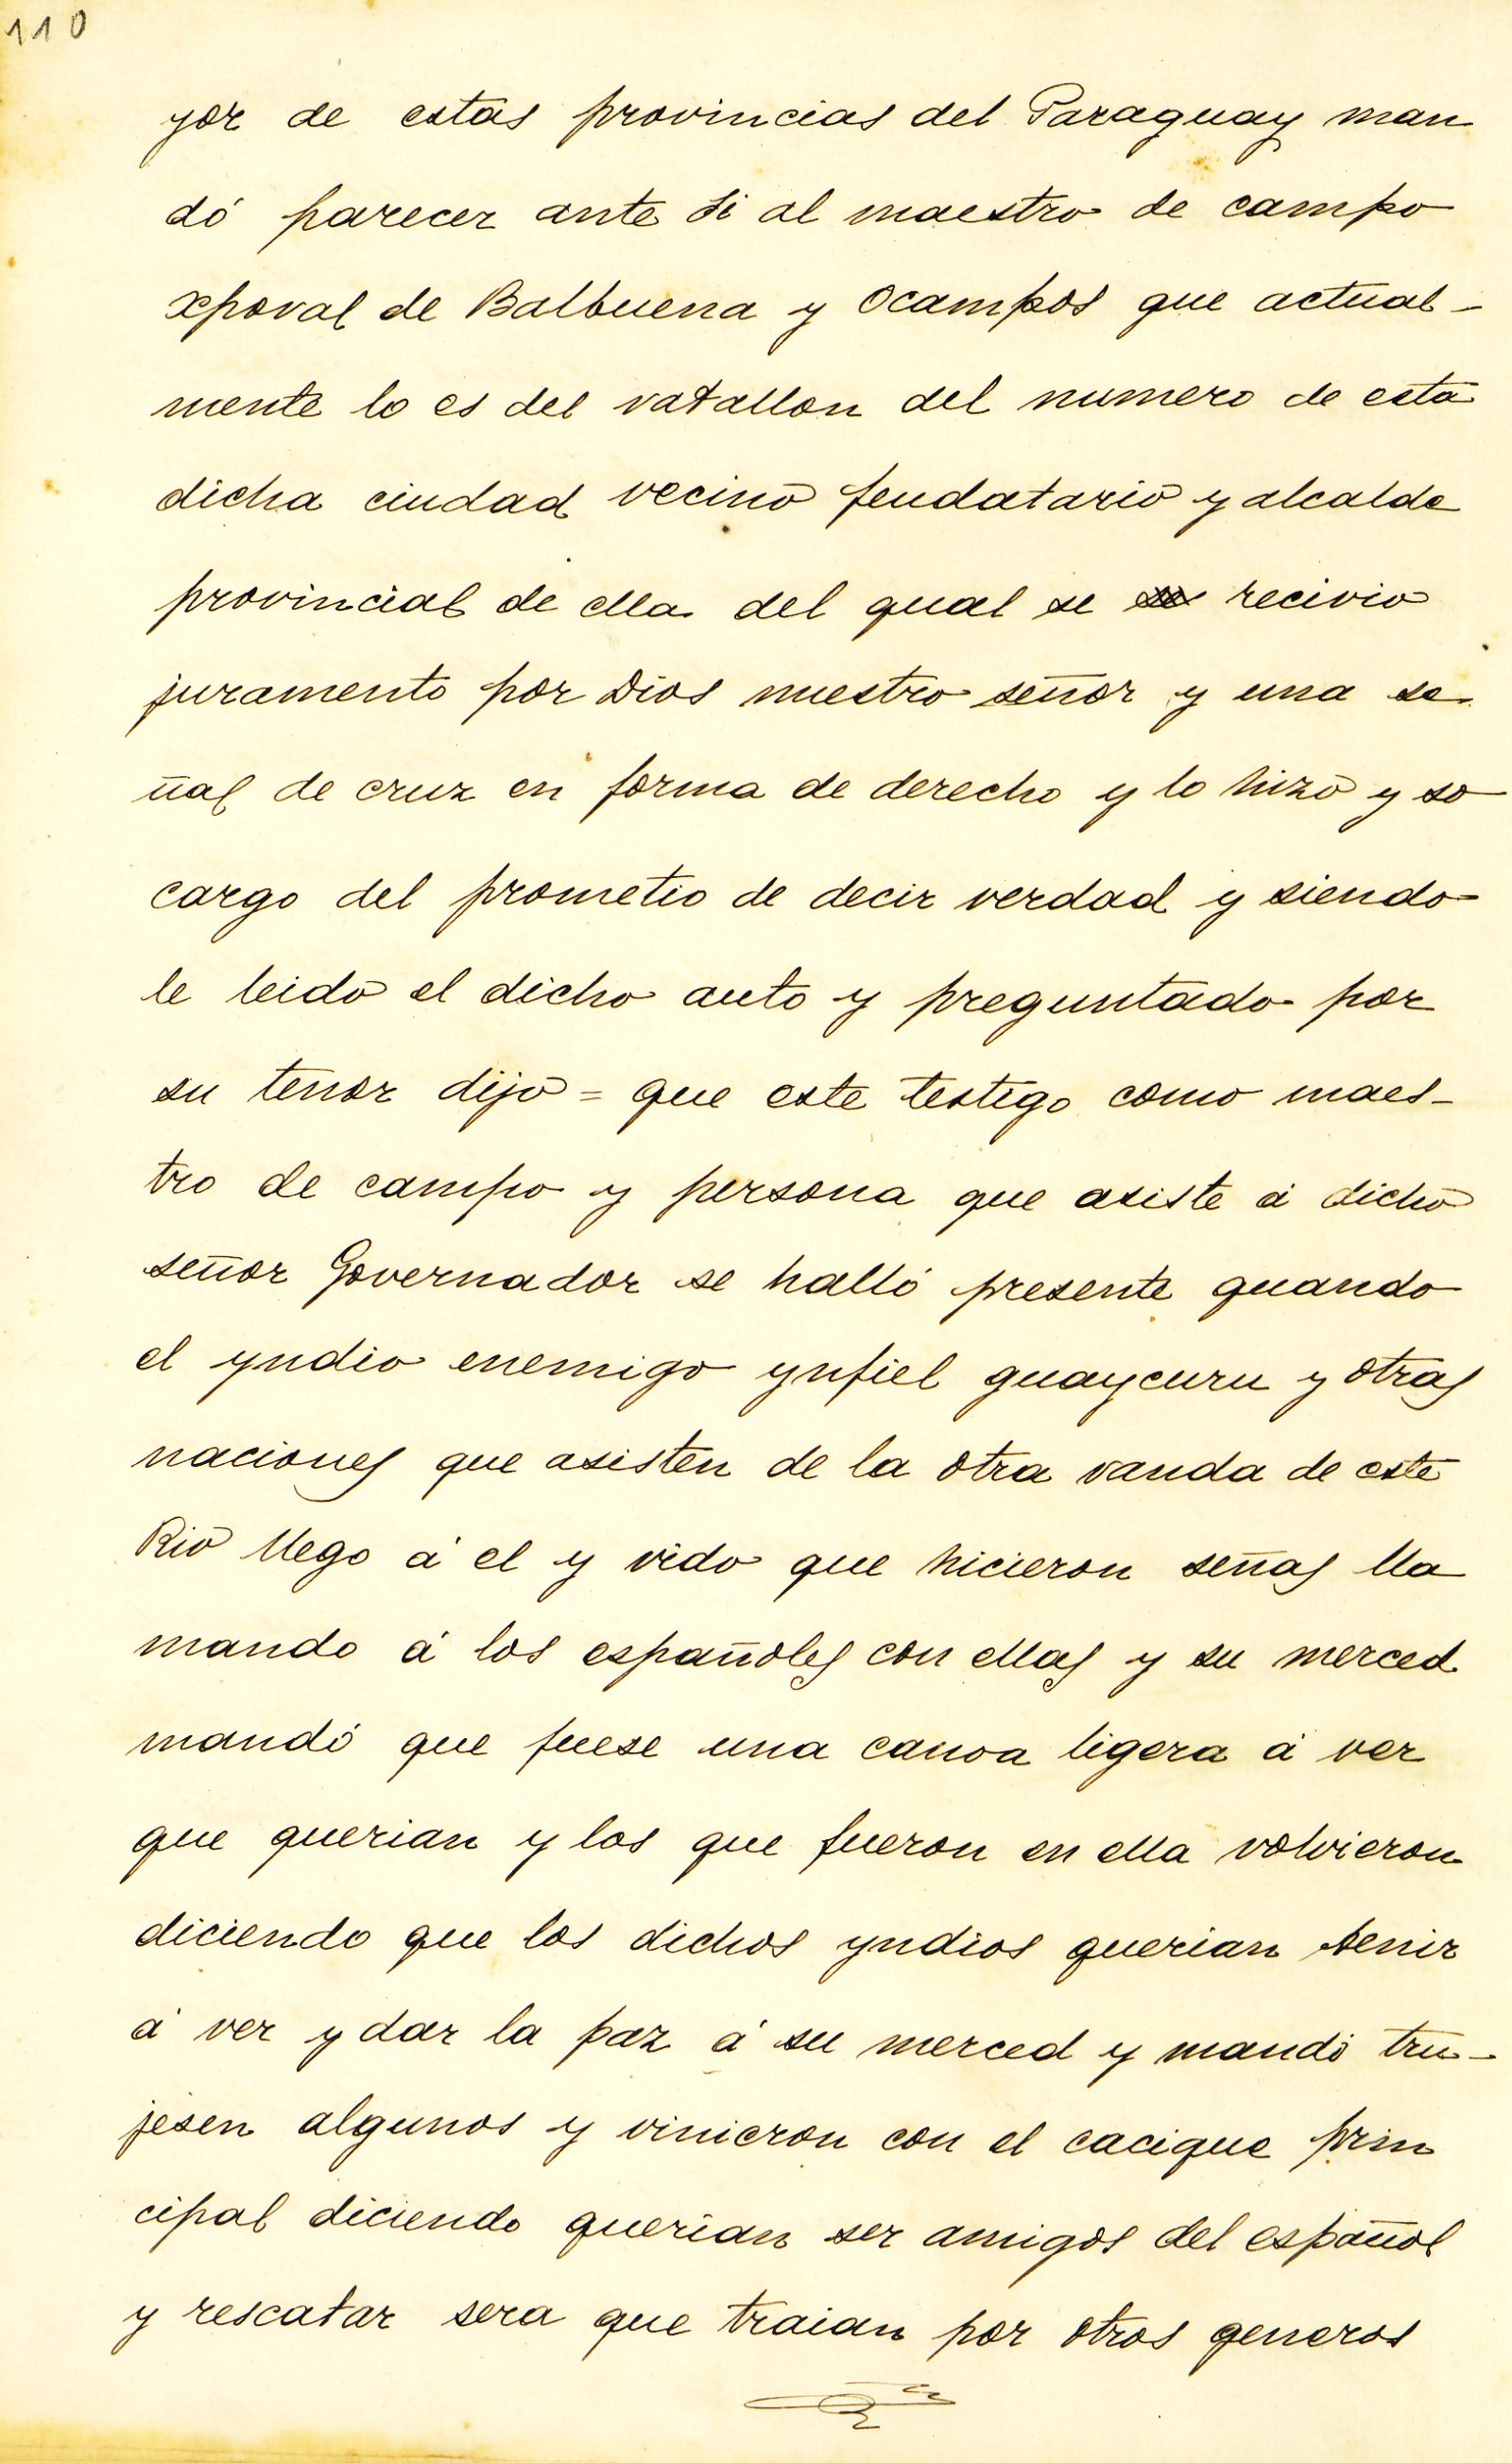 110
yor de estas provincias del Paraguay man
dó parecer ante si al maestro de campo
xpoval de Balbuena y Ocampos que actual-
mente lo es del vatallon del numero de esta
dicha ciudad vecino feudatario y alcalde
provincial de ella del qual se se recivio
juramento por Dios nuestro señor y una se
ñal de cruz en forma de derecho y lo hizo y so
cargo del prometio de decir verdad y siendo
le leido el dicho auto y preguntado por
su tenor dijo = que este testigo como maes-
tro de campo y persona que asiste á dicho
señor Governador se halló presente quando
el yndio enemigo ynfiel guaycuru y otras
naciones que asisten de la otra vanda de este
Rio llego á el y vido que hicieron señas lla
mando á los españoles con ellas y su merced
mandó que fuese una canoa ligera á ver
que querian y los que fueron en ella volvieron
diciendo que los dichos yndios querian benir
á ver y dar la paz á su merced y mandó tru-
jesen algunos y vinieron con el cacique prin
cipal diciendo querian ser amigos del español
y rescatar sera que traian por otros generos